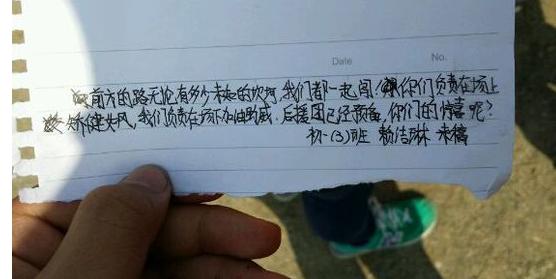 Date No.
前方的路无论有多少未知的坎坷,我们都一起闯!你们负责在场上
矫健失风,我们负责在场下加油助威,后援团已经预备,你们的惊喜呢?
初一(3)班 赖洁琳 来稿